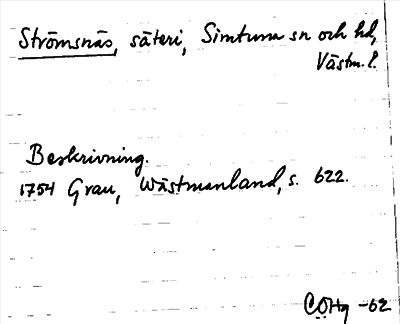 Strömsnäs, säteri, Simtuna sn och hd,
Västm. l.
Beskrivning.
1754 Grau, Wästmanland, s. 622.
COHg -62